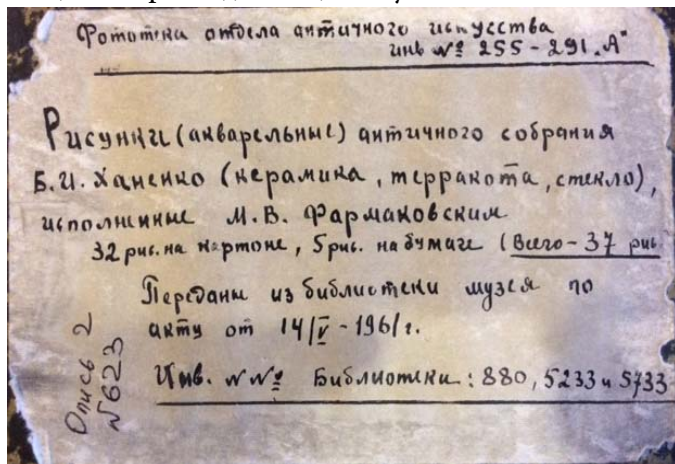 Фототека отдела античного искусства
инв № 255 - 291 „А"
Рисунки (акварельные) античного собрания
Б. И. Ханенко (керамика, терракота, стекло),
исполненные М. В. Фармаковским
32 рис. на картоне, 5 рис. на бумаге (Всего - 37 рис
Переданы из библиотеки музея по
акту от 14/V - 1961 г.
Инв. №№ Библиотеки: 880, 5233 и 5733
Опись 2
№623